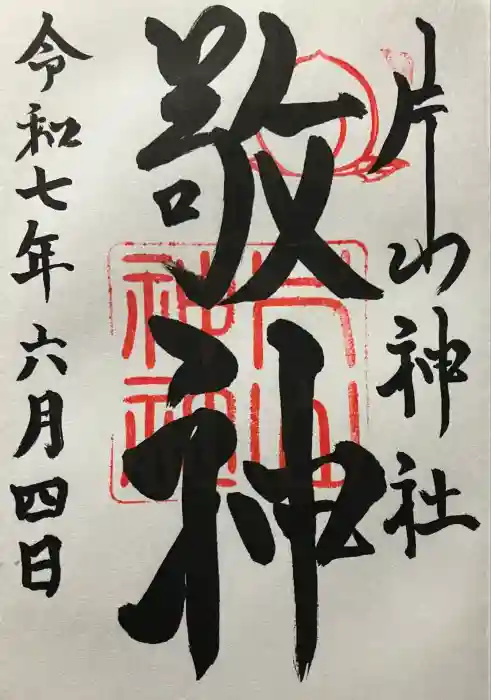 片山神社
敬神
令和七年六月四日